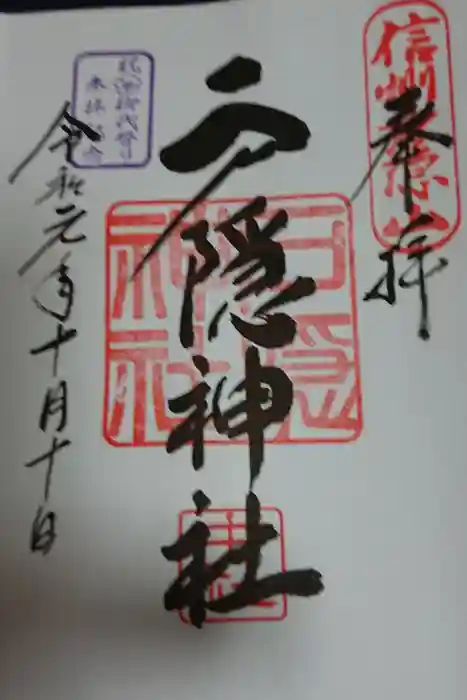 信州戸隠山
奉拝
戸隠神社
戸隠
神社
中社
令和元年十月十日